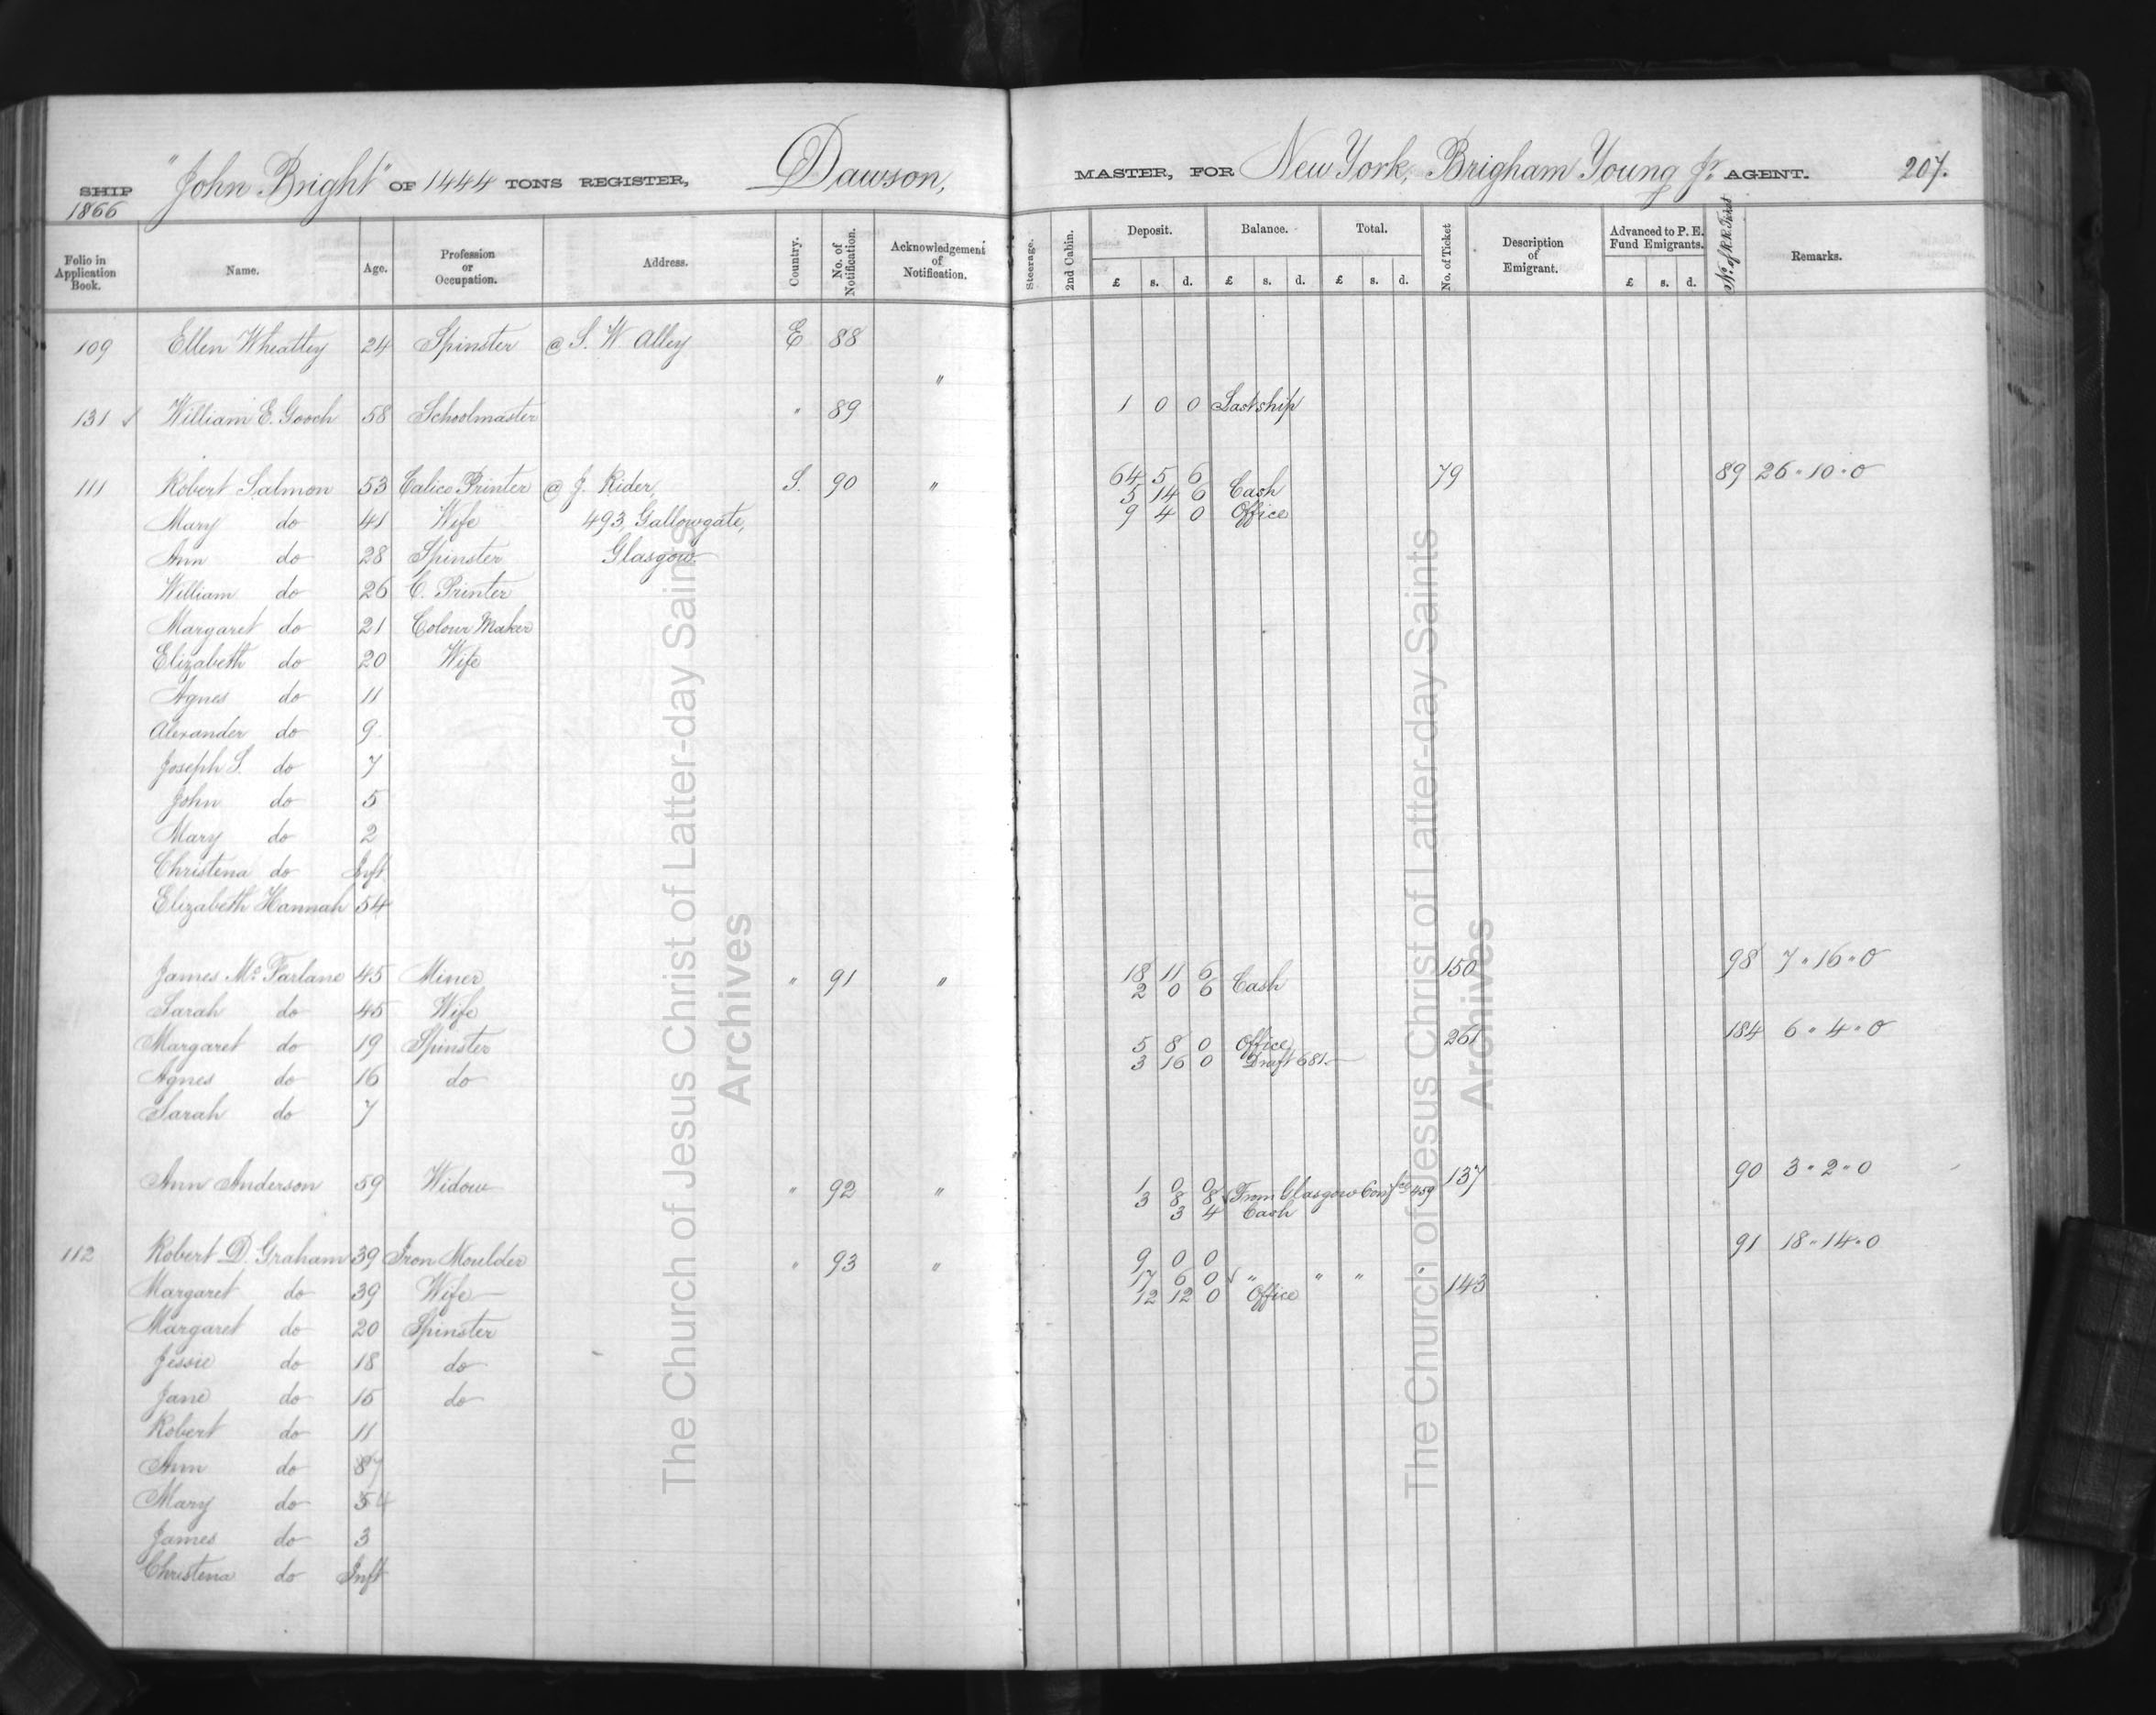 SHIP "John Bright" OF 1444 TONS REGISTER, Dawson, MASTER, FOR New York, Brigham Young Jr. AGENT. 207.
1866
Folio in Application Book. Name. Age. Profession or Occupation. Address. Country. No. of Notification. Acknowledgement of Notification. Steerage. 2nd Cabin. Deposit. Balance. Total. No. of Ticket Description of Emigrant. Advanced to P. E. Fund Emigrants. No. of R.R. Ticket Remarks.
£ s. d. £ s. d. £ s. d. £ s. d.
109 Ellen Wheatley 24 Spinster @ S. W. Alley E 88
"
131 William E. Gooch 58 Schoolmaster " 89 1 0 0 Last ship
111 Robert Salmon 53 Calico Printer @ J. Rider, S. 90 " 64 5 6 79 89 26 " 10 " 0
5 14 6 Cash
Mary do 41 Wife 493, Gallowgate, 9 4 0 Office
Ann do 28 Spinster Glasgow.
William do 26 C. Printer
Margaret do 21 Colour Maker
Elizabeth do 20 Wife
Agnes do 11
Alexander do 9.
Joseph S. do 7
John do 5
Mary do 2
Christena do Inft.
Elizabeth Hannah 54
James Mc Farlane 45 Miner " 91 " 18 11 6 150 98 7 " 16 " 0
2 0 6 Cash
Sarah do 45 Wife
Margaret do 19 Spinster 5 8 0 Office 261 184 6 " 4 " 0
3 16 0 Draft 681
Agnes do 16 do
Sarah do 7
Ann Anderson 59 Widow " 92 " 1 0 0 137 90 3 " 2 " 0
3 8 8 From Glasgow Confce 459
3 4 Cash
112 Robert D. Graham 39 Iron Moulder " 93 " 9 0 0 91 18 " 14 " 0
17 6 0 " " " "
Margaret do 39 Wife 12 12 0 Office 143
Margaret do 20 Spinster
Jessie do 18 do
Jane do 15 do
Robert do 11
Ann do 87
Mary do 54
James do 3
Christena do Inft
The Church of Jesus Christ of Latter-day Saints
Archives
The Church of Jesus Christ of Latter-day Saints
Archives